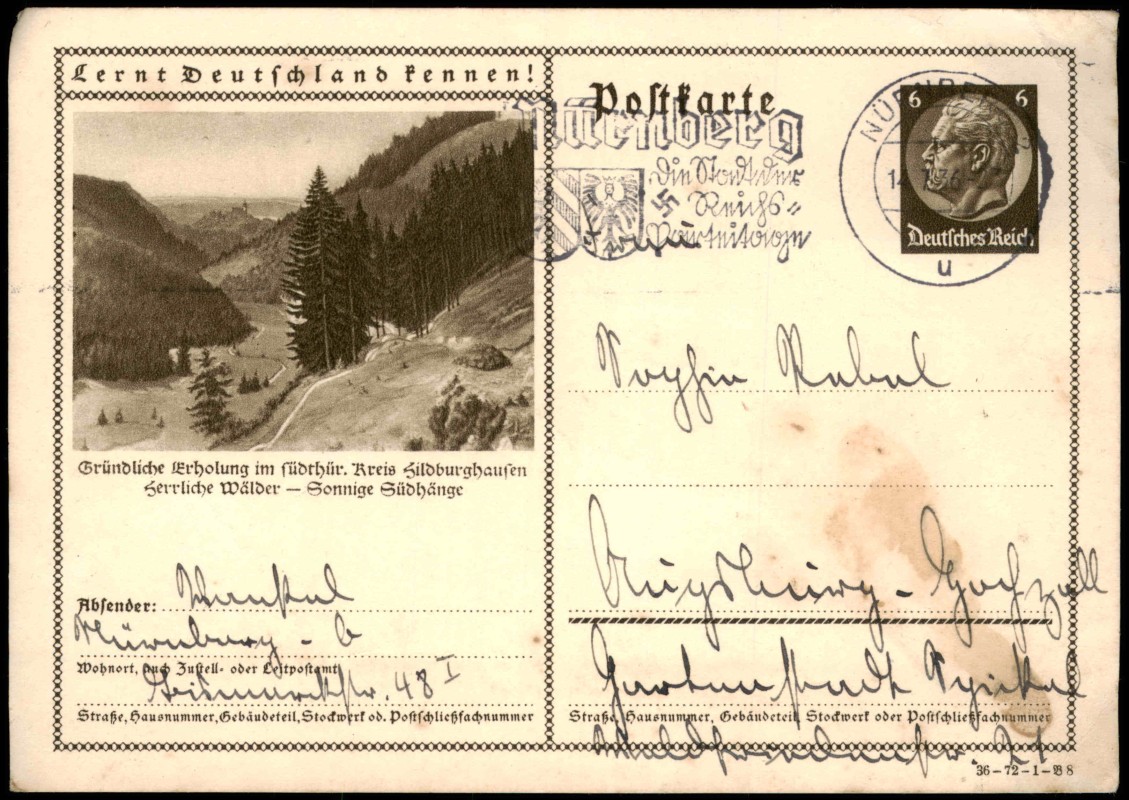 Lernt Deutschland kennen!
Gründliche Erholung im südthür. Kreis Hildburghausen
Herrliche Wälder – Sonnige Südhänge
Absender:
Nürnberg - 6
Wohnort, auch Zustell- oder Leitpostamt
Bismarckstr. 48 I
Straße, Hausnummer, Gebäudeteil, Stockwerk od. Postschließfachnummer
Postkarte
Nürnberg
Die Stadt der
Reichs=
Parteitage
NÜRNBERG
14.7.36
u
6 6
Deutsches Reich
Frau
Sophie Rabel
Augsburg - Hochzoll
Gartenstadt Spickel
Waldfriedenstr. 21
Straße, Hausnummer, Gebäudeteil, Stockwerk oder Postschließfachnummer
36–72–1–B8